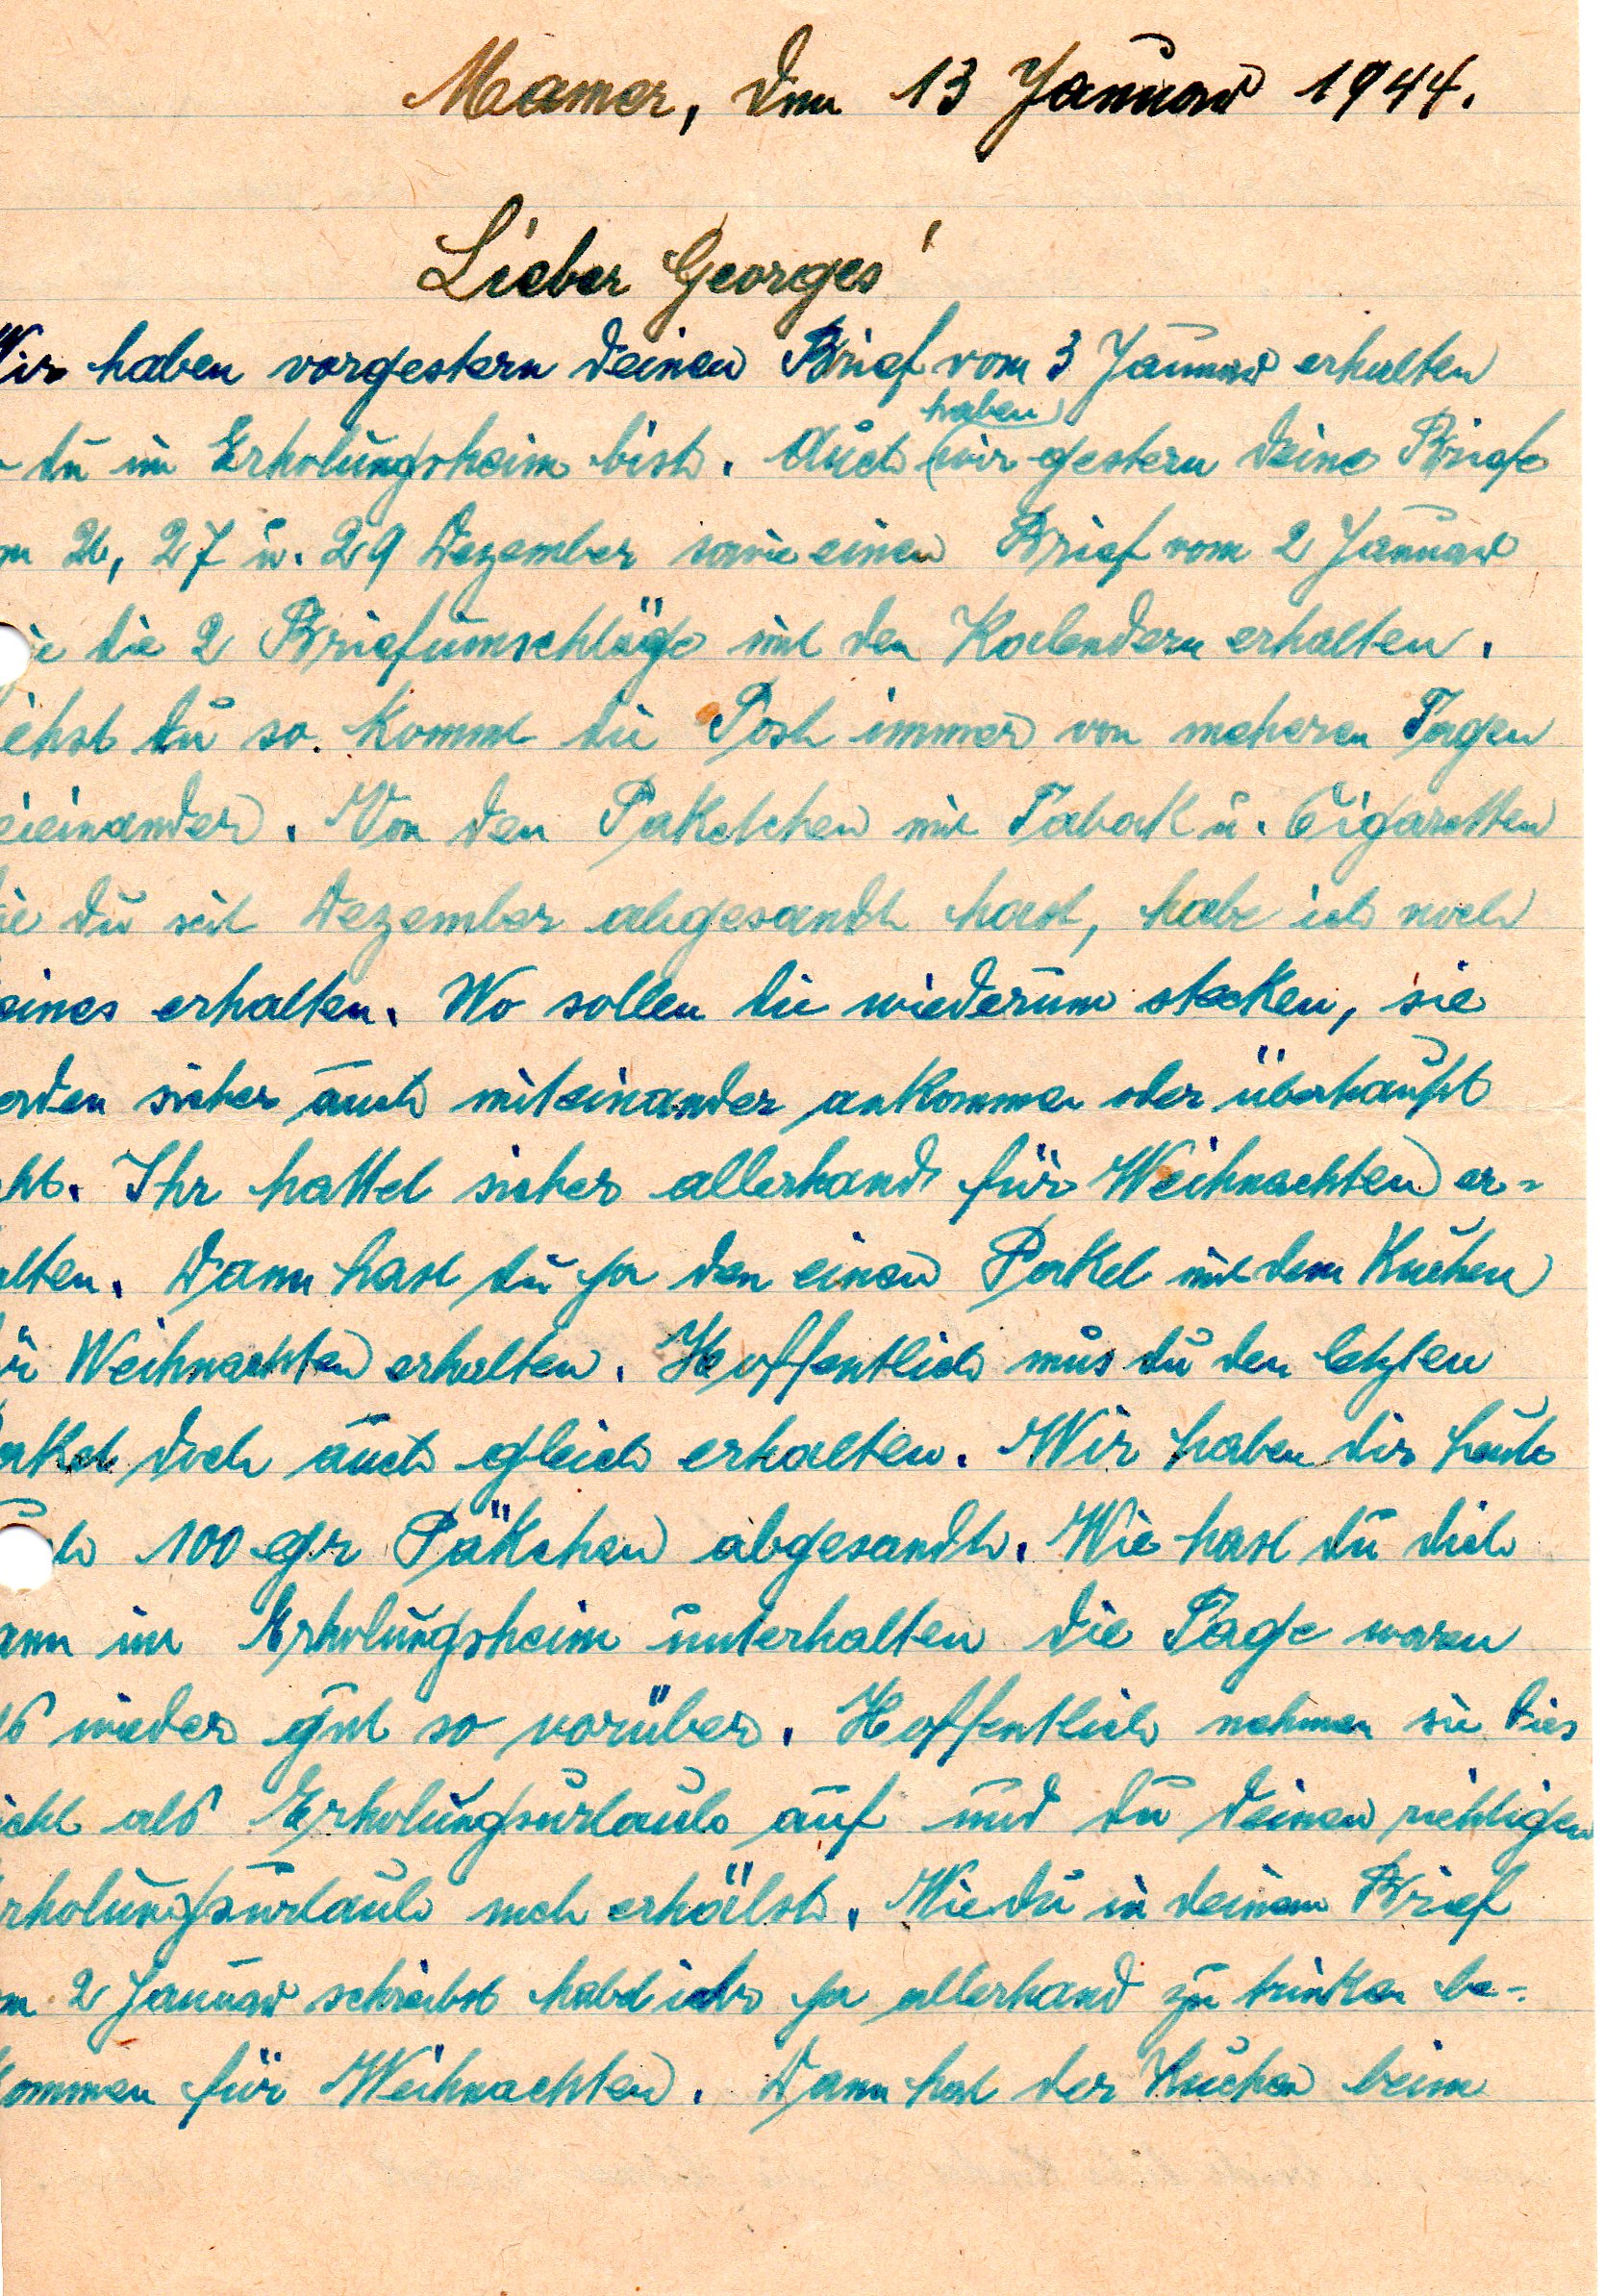 Mamer, den 13 Januar 1944.
Lieber Georges!
Wir haben vorgestern deinen Brief vom 3 Januar erhalten
du im Erholungsheim bist. Auch haben wir gestern deine Briefe
26, 27 u. 29 Dezember sowie einen Brief vom 2 Januar
die 2 Briefumschläge mit den Kalendern erhalten.
ehst du so kommt die Post immer von meheren Tagen
eieinander. Von den Paketchen mit Tabak u. Cigaretten
ie du seit Dezember abgesandt hast, habe ich noch
eines erhalten. Wo sollen die wiederum stecken, sie
erden sicher auch miteinander ankommen oder überhaupt
ht. Ihr hattet sicher allerhand für Weihnachten er=
alten. Dann hast du ja den einen Paket mit dem Kuchen
ür Weihnachten erhalten. Hoffentlich mus du den letzten
aket doch auch gleich erhalten. Wir haben dir heute
100 gr Päkchen abgesandt. Wie hast du dich
ann im Erholungsheim unterhalten die Tage waren
wieder gut so vorüber. Hoffentlich nehmen sie dies
icht als Erholungsurlaub auf und du deinen richtigen
rholungsurlaub noch erhälst. Wie du in deinem Brief
m 2 Januar schreibst habt ihr ja allerhand zu trinken be-
kommen für Weihnachten. Dann hat der Kuchen beim